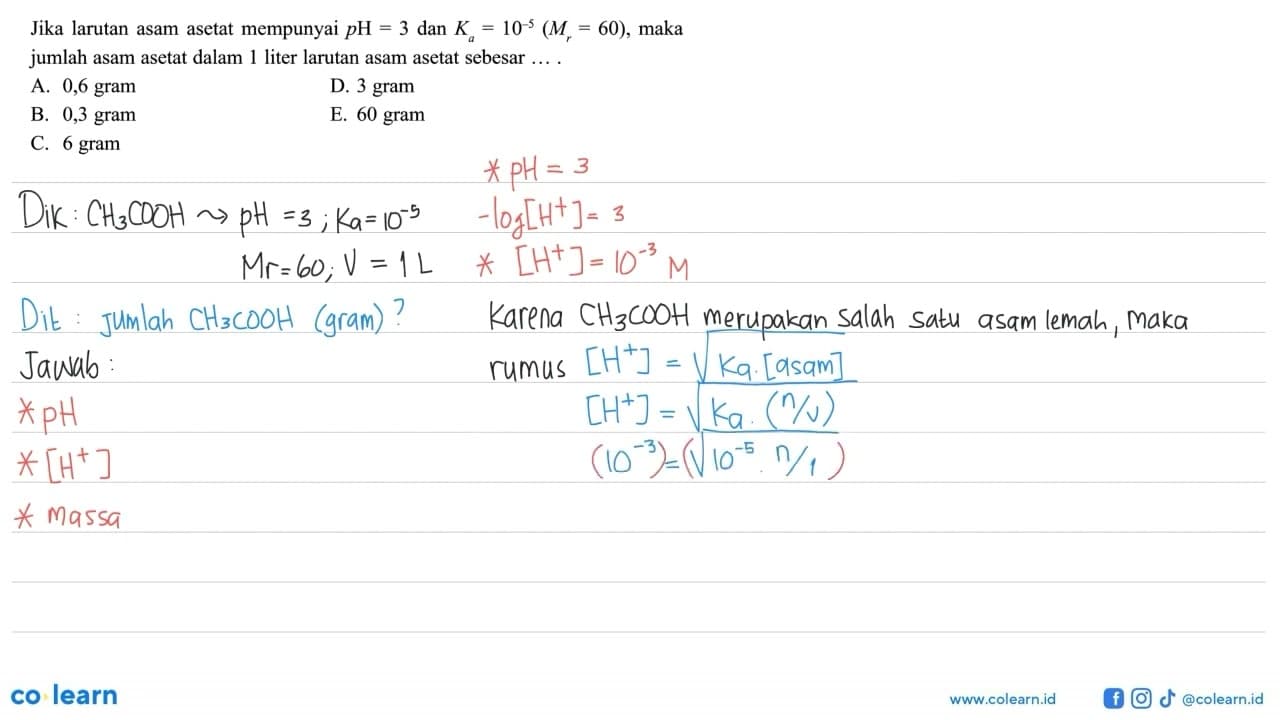 Jika larutan asam asetat mempunyai pH = 3 dan Kₐ = 10⁻⁵ (Mᵣ = 60), maka
jumlah asam asetat dalam 1 liter larutan asam asetat sebesar ... .
A. 0,6 gram D. 3 gram
B. 0,3 gram E. 60 gram
C. 6 gram
Dik : CH₃COOH ⤳ pH = 3 ; Ka = 10⁻⁵
Mr = 60 ; V = 1 L
Dit : Jumlah CH₃COOH (gram) ?
Jawab :
* pH
* [H⁺]
* Massa
* pH = 3
-log[H⁺] = 3
* [H⁺] = 10⁻³ M
Karena CH₃COOH merupakan salah satu asam lemah, Maka
rumus [H⁺] = √Ka.[asam]
[H⁺] = √Ka . (n/v)
(10⁻³) = (√10⁻⁵ . n/1 )
co learn
www.colearn.id @colearn.id